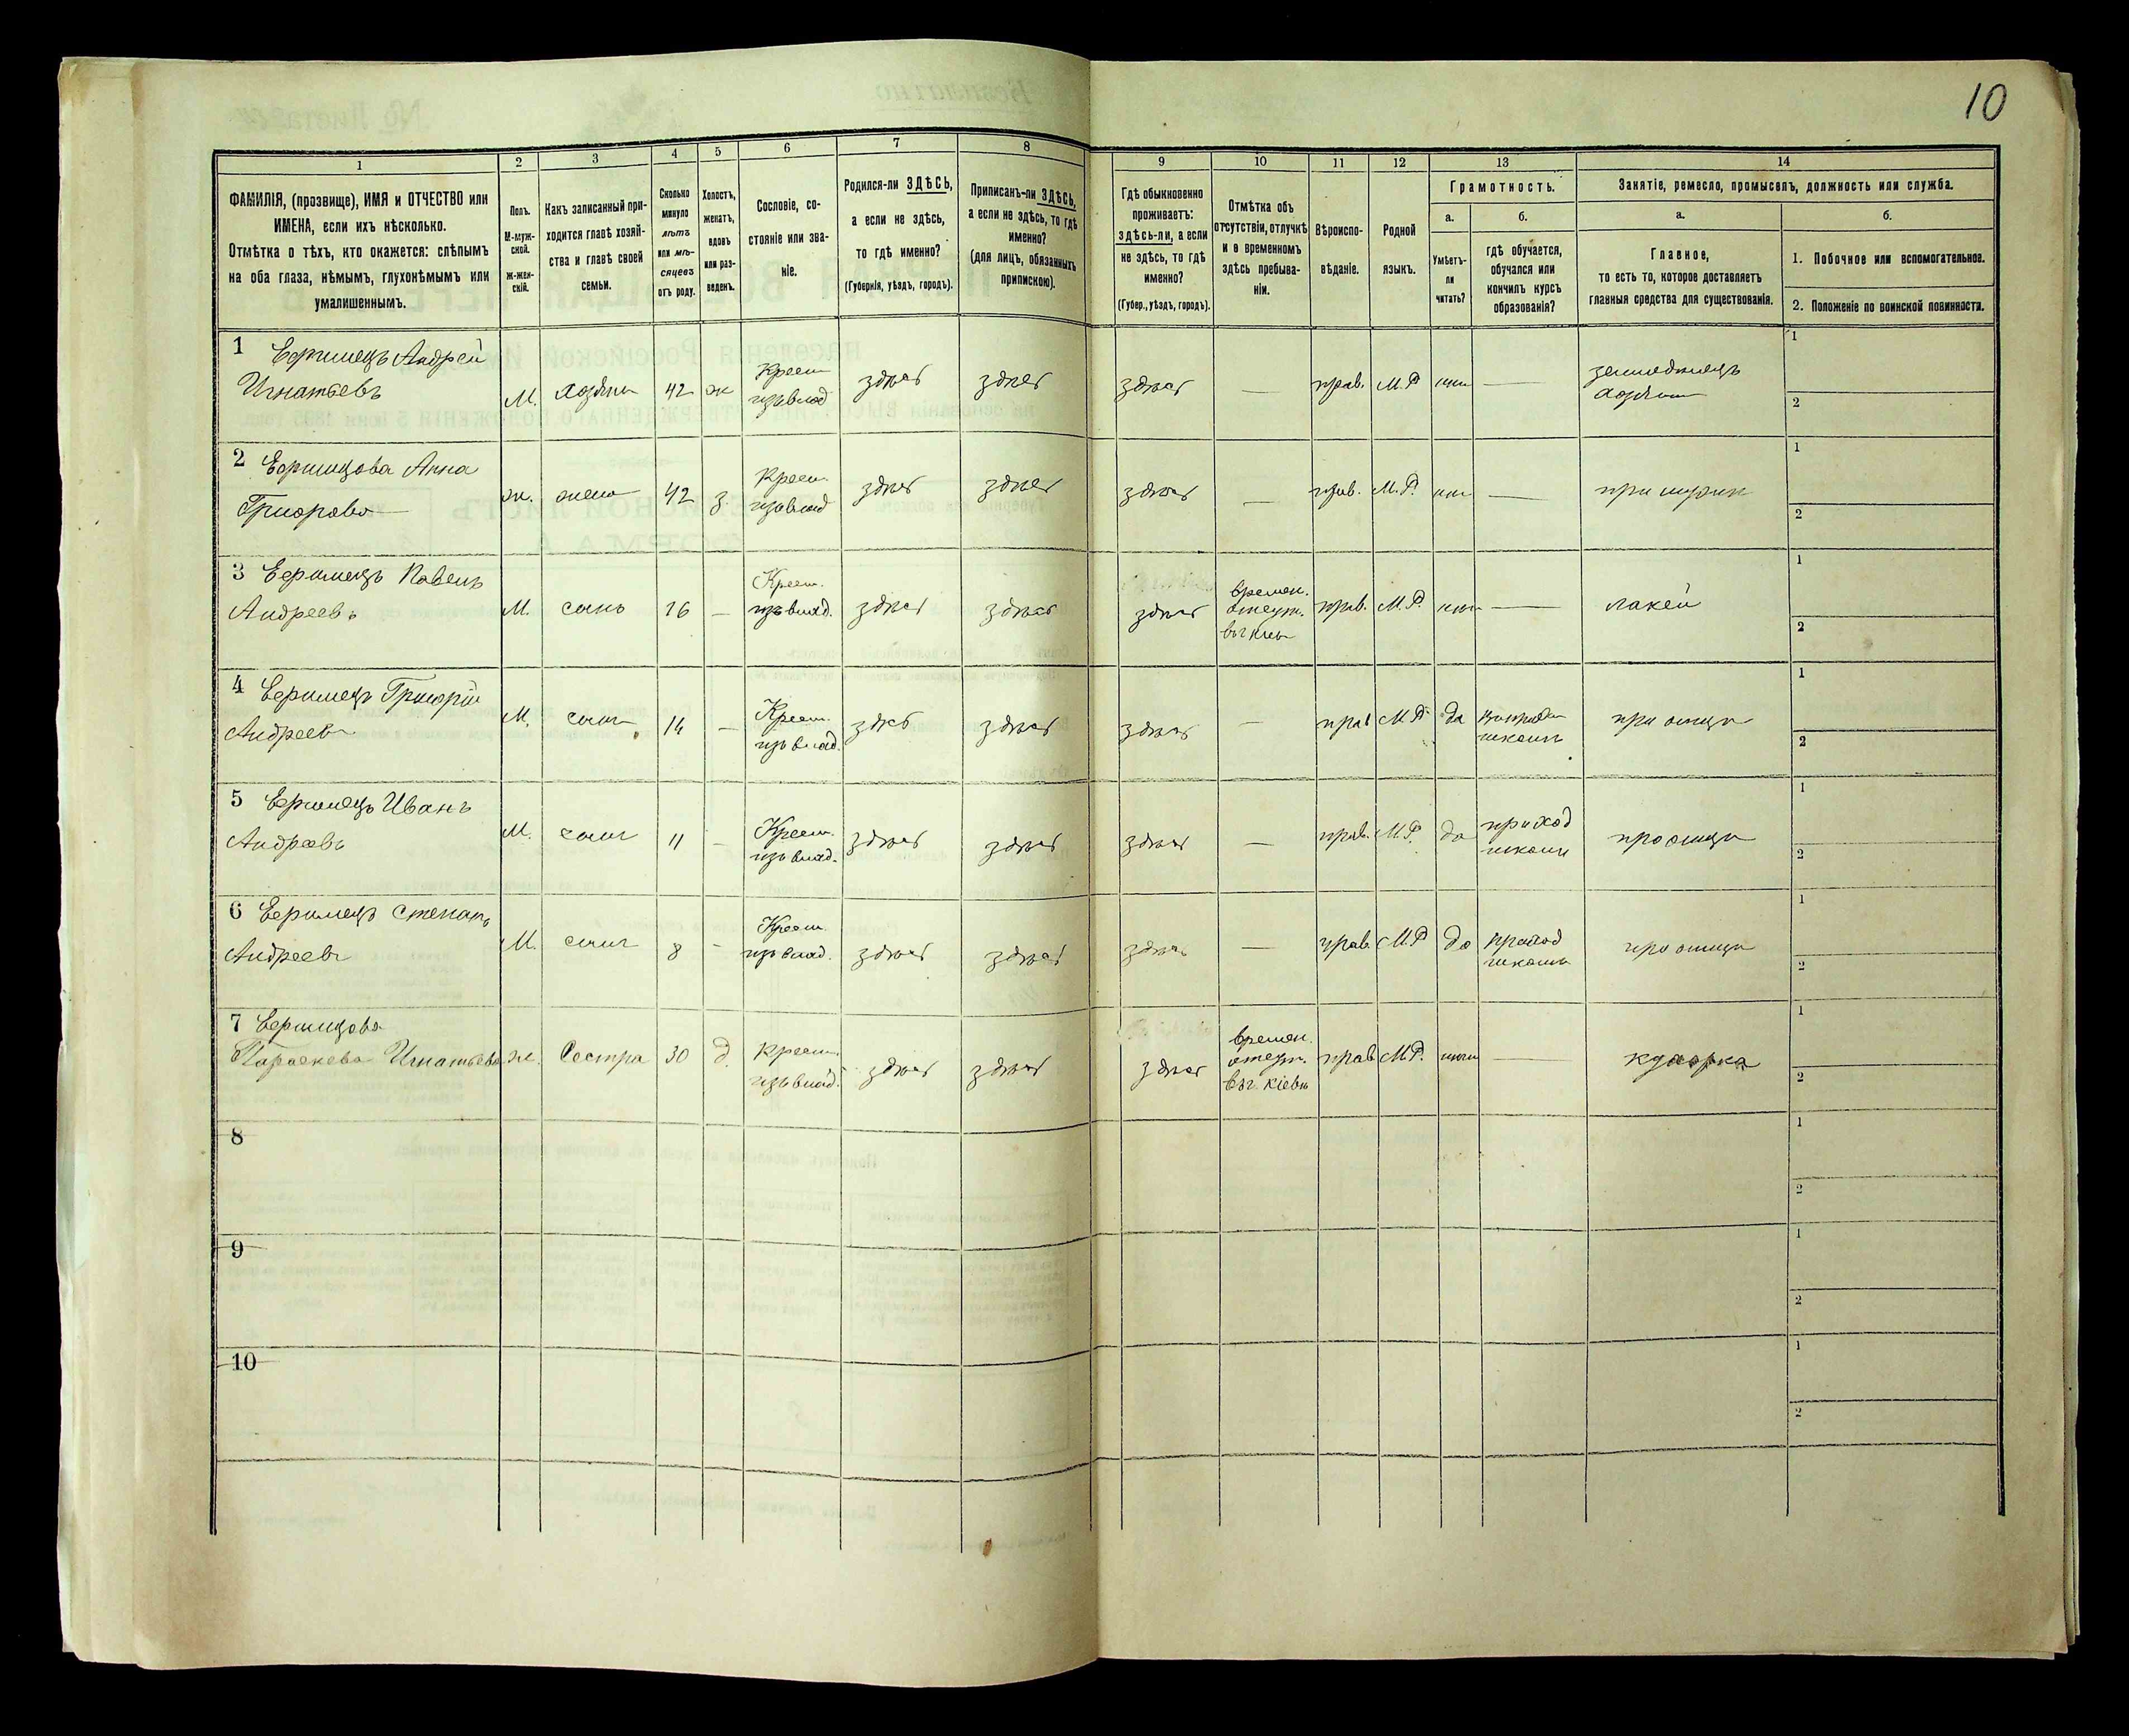 10
1
2
3
4
5
6
7
8
9
10
11
12
13
14
ФАМИЛІЯ, (прозвище), ИМЯ и ОТЧЕСТВО или
ИМЕНА, если ихъ нѣсколько.
Отмѣтка о тѣхъ, кто окажется: слѣпымъ
на оба глаза, нѣмымъ, глухонѣмымъ или
умалишеннымъ.
Полъ.
М-муж-
ской.
ж-жен-
скій.
Какъ записанный при-
ходится главѣ хозяй-
ства и главѣ своей
семьи.
Сколько
минуло
лѣтъ
или мѣ-
сяцевъ
отъ роду.
Холостъ,
женатъ,
вдовъ
или раз-
веденъ.
Сословіе, со-
стояніе или зва-
ніе.
Родился-ли ЗДѢСЬ,
а если не здѣсь,
то гдѣ именно?
(Губернія, уѣздъ, городъ).
Приписанъ-ли ЗДѢСЬ,
а если не здѣсь, то гдѣ
именно?
(для лицъ, обязанныхъ
припискою).
Гдѣ обыкновенно
проживаетъ:
здѣсь-ли, а если
не здѣсь, то гдѣ
именно?
(Губер., уѣздъ, городъ).
Отмѣтка объ
отсутствіи, отлучкѣ
и о временномъ
здѣсь пребыва-
ніи.
Вѣроиспо-
вѣданіе.
Родной
языкъ.
Грамотность.
а.
Умѣетъ-
ли
читать?
б.
гдѣ обучается,
обучался или
кончилъ курсъ
образованія?
Занятіе, ремесло, промыселъ, должность или служба.
а.
Главное,
то есть то, которое доставляетъ
главныя средства для существованія.
б.
1. Побочное или вспомогательное.
2. Положеніе по воинской повинности.
1 Андрей
Игнатьевъ
М. хозяинъ 42 ж Крест. изъ влад здѣсь здѣсь здѣсь — прав. М.Р. — хозяинъ
1
2
2 Анна
ж. жена 42 з. Крест. изъ влад здѣсь здѣсь здѣсь — прав. М.Р. —
1
2
3 Павелъ
Андреевъ
М. сынъ 16 — Крест. изъ влад. здѣсь здѣсь здѣсь времен. отсут. прав. М.Р. — лакей
1
2
4 Григорій
Андреевъ
М. сынъ 14 — Крест. изъ влад. здѣсь здѣсь здѣсь — прав М.Р. да при отцѣ
1
2
5 Иванъ
М. сынъ 11 — Крест. изъ влад. здѣсь здѣсь здѣсь — прав. М.Р. да приход школы при отцѣ
1
2
6 Степанъ
Андреевъ
М. сынъ 8 — Крест. изъ влад. здѣсь здѣсь здѣсь — прав. М.Р. да приход школы при отцѣ
1
2
7
Параскева Игнатьева
ж. Сестра 30 д. Крест. изъ влад. здѣсь здѣсь здѣсь времен. отсут. въ г. Кіевѣ прав М.Р. — кухарка
1
2
8
1
2
9
1
2
10
1
2